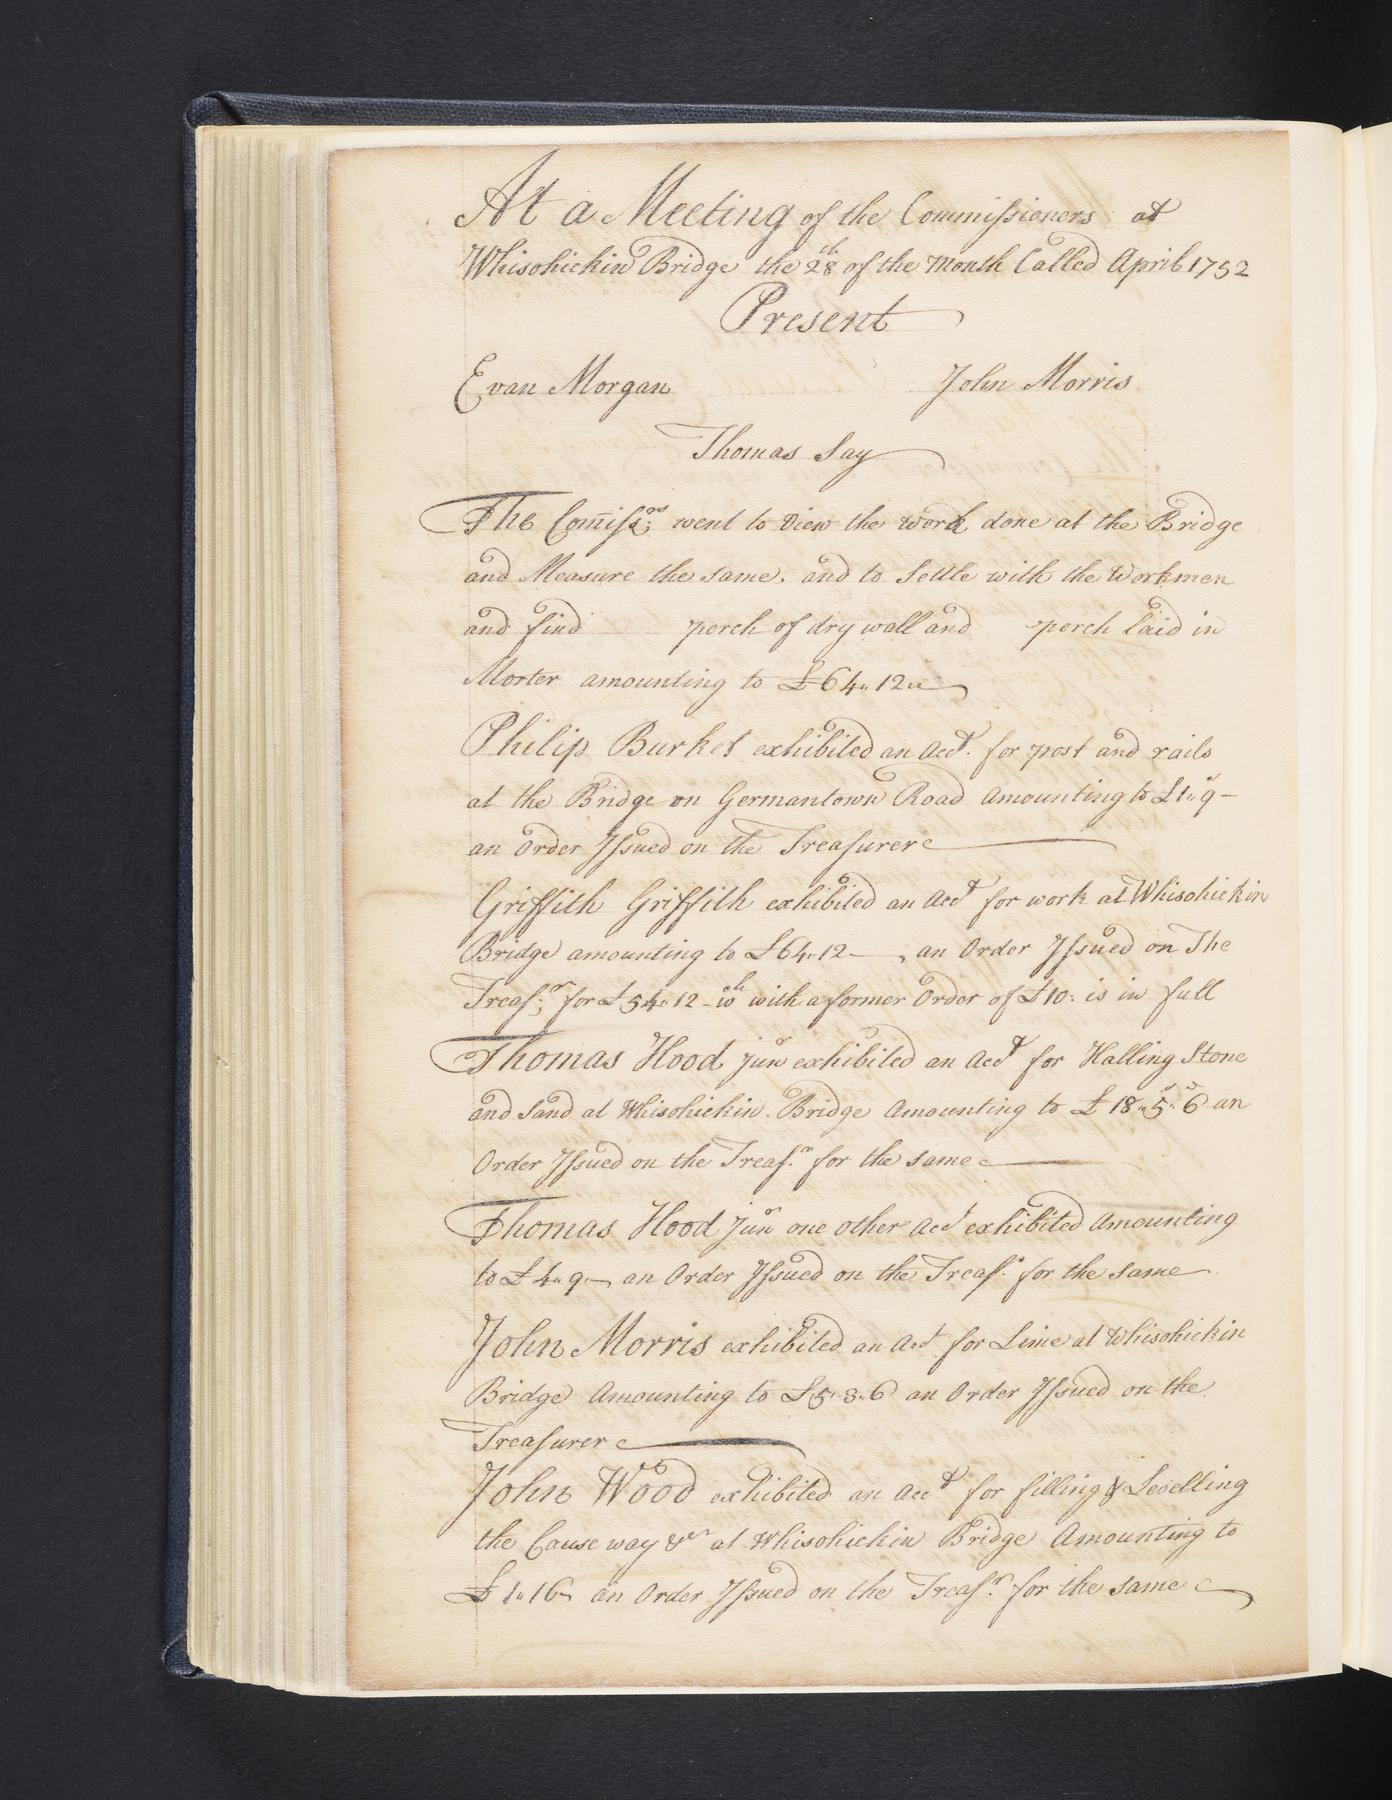 At a Meeting of the Commissioners at
Whisohickin Bridge the 28th of the Month Called April 1752
Present
Evan Morgan John Morris
Thomas Say
The Comissrs went to View the work done at the Bridge
and Measure the same, and to Settle with the Workmen
and find perch of dry wall and perch laid in
Morter amounting to £64„12„
Philip Burket exhibited an Acct. for post and rails
at the Bridge on Germantown Road Amounting to £1„9–
an Order Issued on the Treasurer
Griffith Griffith exhibited an Acct for work at Whisohickin
Bridge amounting to £64„12– , an Order Issued on The
Treasr. for £54„12– wch with a former Order of £10: is in full
Thomas Hood junr exhibited an Acct for Halling Stone
and Sand at Whisohickin Bridge Amounting to £18„5s„6d an
Order Issued on the Treasr. for the same
Thomas Hood Junr one other Acct exhibited Amounting
to £4„9„– an Order Issued on the Treasr. for the same
John Morris exhibited an Act for Lime at Whisohickin
Bridge Amounting to £5„8„6 an Order Issued on the
Treasurer
John Wood exhibited an Acct for filling & Levelling
the Cause way &ca at Whisohickin Bridge Amounting to
£1„16– an Order Issued on the Treasr. for the same